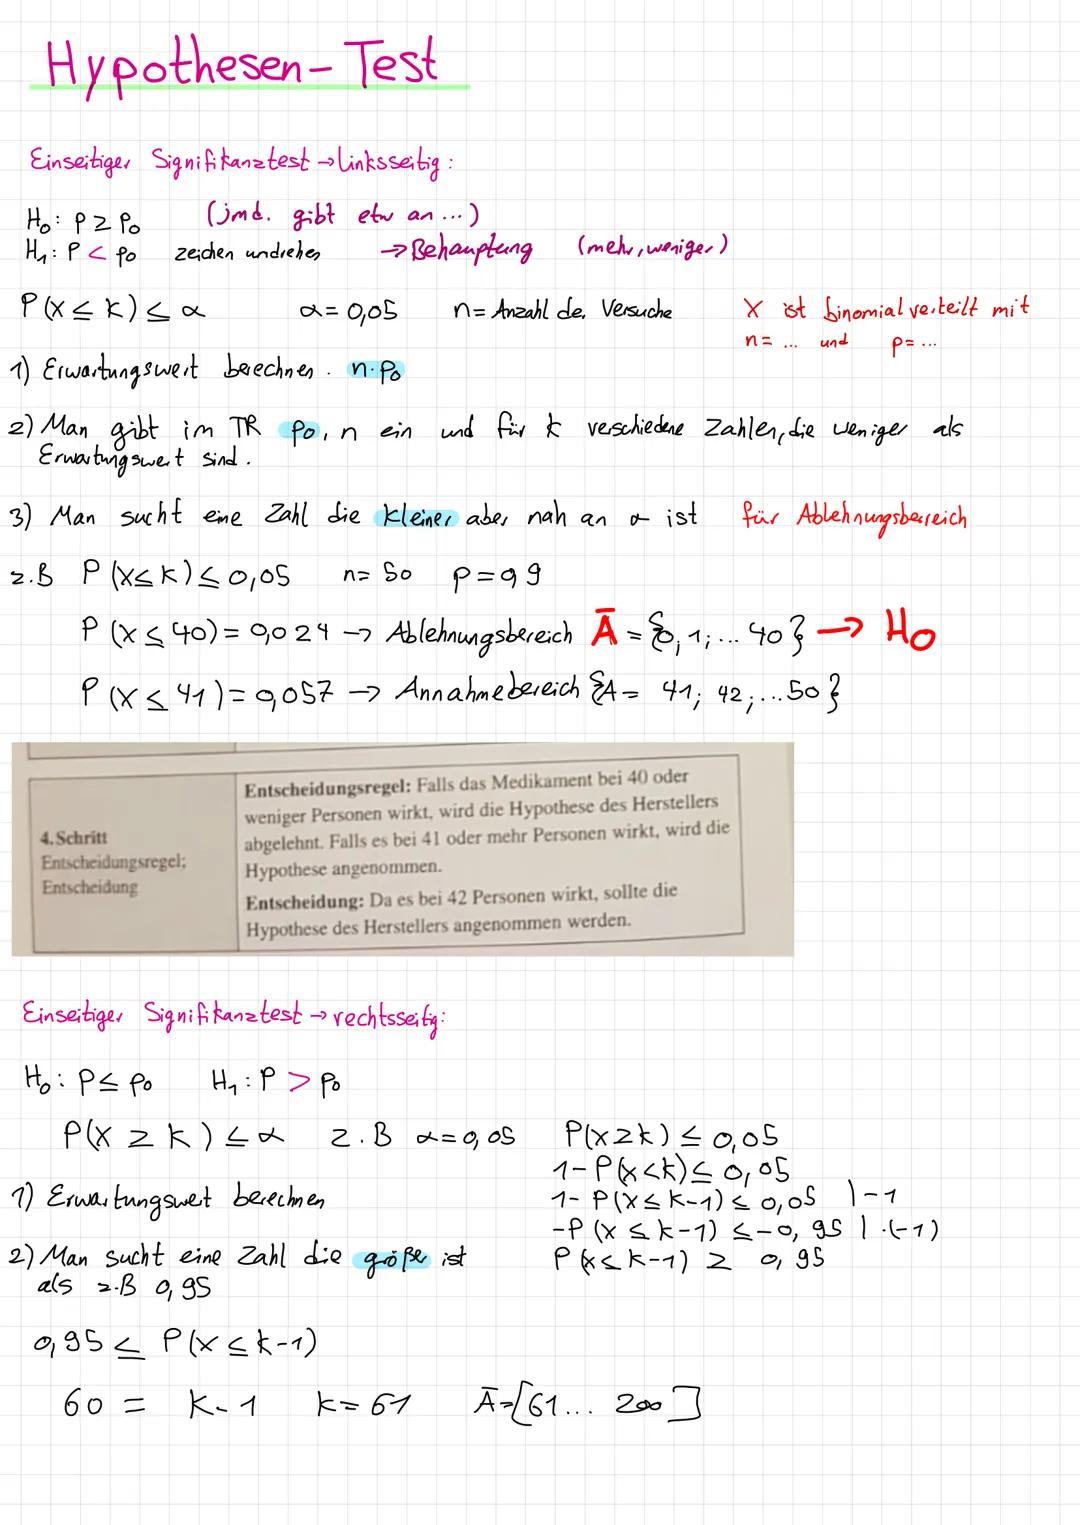 Hypothesen-Test
Einseitiger Signifikanztest → linksseitig:
H₀: p ≥ p₀ (jmd. gibt etw an ...)
H₁: p < p₀ zeichen umdrehen → Behauptung (mehr, weniger)
P(X ≤ k) ≤ α α = 0,05 n = Anzahl der Versuche X ist binomialverteilt mit
n = ... und p = ...
1) Erwartungswert berechnen. n·p₀
2) Man gibt im TR p₀, n ein und für k verschiedene Zahlen, die weniger als
Erwartungswert sind.
3) Man sucht eine Zahl die kleiner aber nah an α ist für Ablehnungsbereich
z.B P(X ≤ k) ≤ 0,05 n = 50 p = 0,9
P(X ≤ 40) = 0,024 → Ablehnungsbereich Ā = {0, 1; ... 40} → H₀
P(X ≤ 41) = 0,057 → Annahmebereich {A = 41; 42; ... 50}
Entscheidungsregel: Falls das Medikament bei 40 oder
weniger Personen wirkt, wird die Hypothese des Herstellers
4. Schritt abgelehnt. Falls es bei 41 oder mehr Personen wirkt, wird die
Entscheidungsregel; Hypothese angenommen.
Entscheidung Entscheidung: Da es bei 42 Personen wirkt, sollte die
Hypothese des Herstellers angenommen werden.
Einseitiger Signifikanztest → rechtsseitig:
H₀: p ≤ p₀ H₁: p > p₀
P(X ≥ k) ≤ α z.B α = 0,05 P(X ≥ k) ≤ 0,05
1 - P(X < k) ≤ 0,05
1) Erwartungswert berechnen 1 - P(X ≤ k-1) ≤ 0,05 | -1
-P(X ≤ k-1) ≤ -0,95 | ·(-1)
2) Man sucht eine Zahl die größer ist P(X ≤ k-1) ≥ 0,95
als z.B 0,95
0,95 ≤ P(X ≤ k-1)
60 = k-1 k = 61 Ā = [61 ... 200]